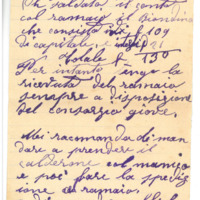 saldato, il conto
col ramaio, il Biondino
che consiste £ 109
di capitale, e 21
Totale £ 130
Per intanto tengo la
ricevuta del ramaio
sempre a disposizione
del consorzio
Mi racumanda di man
dare a prendere il
col manico
e poi fare la spedi
zione a ramaio.